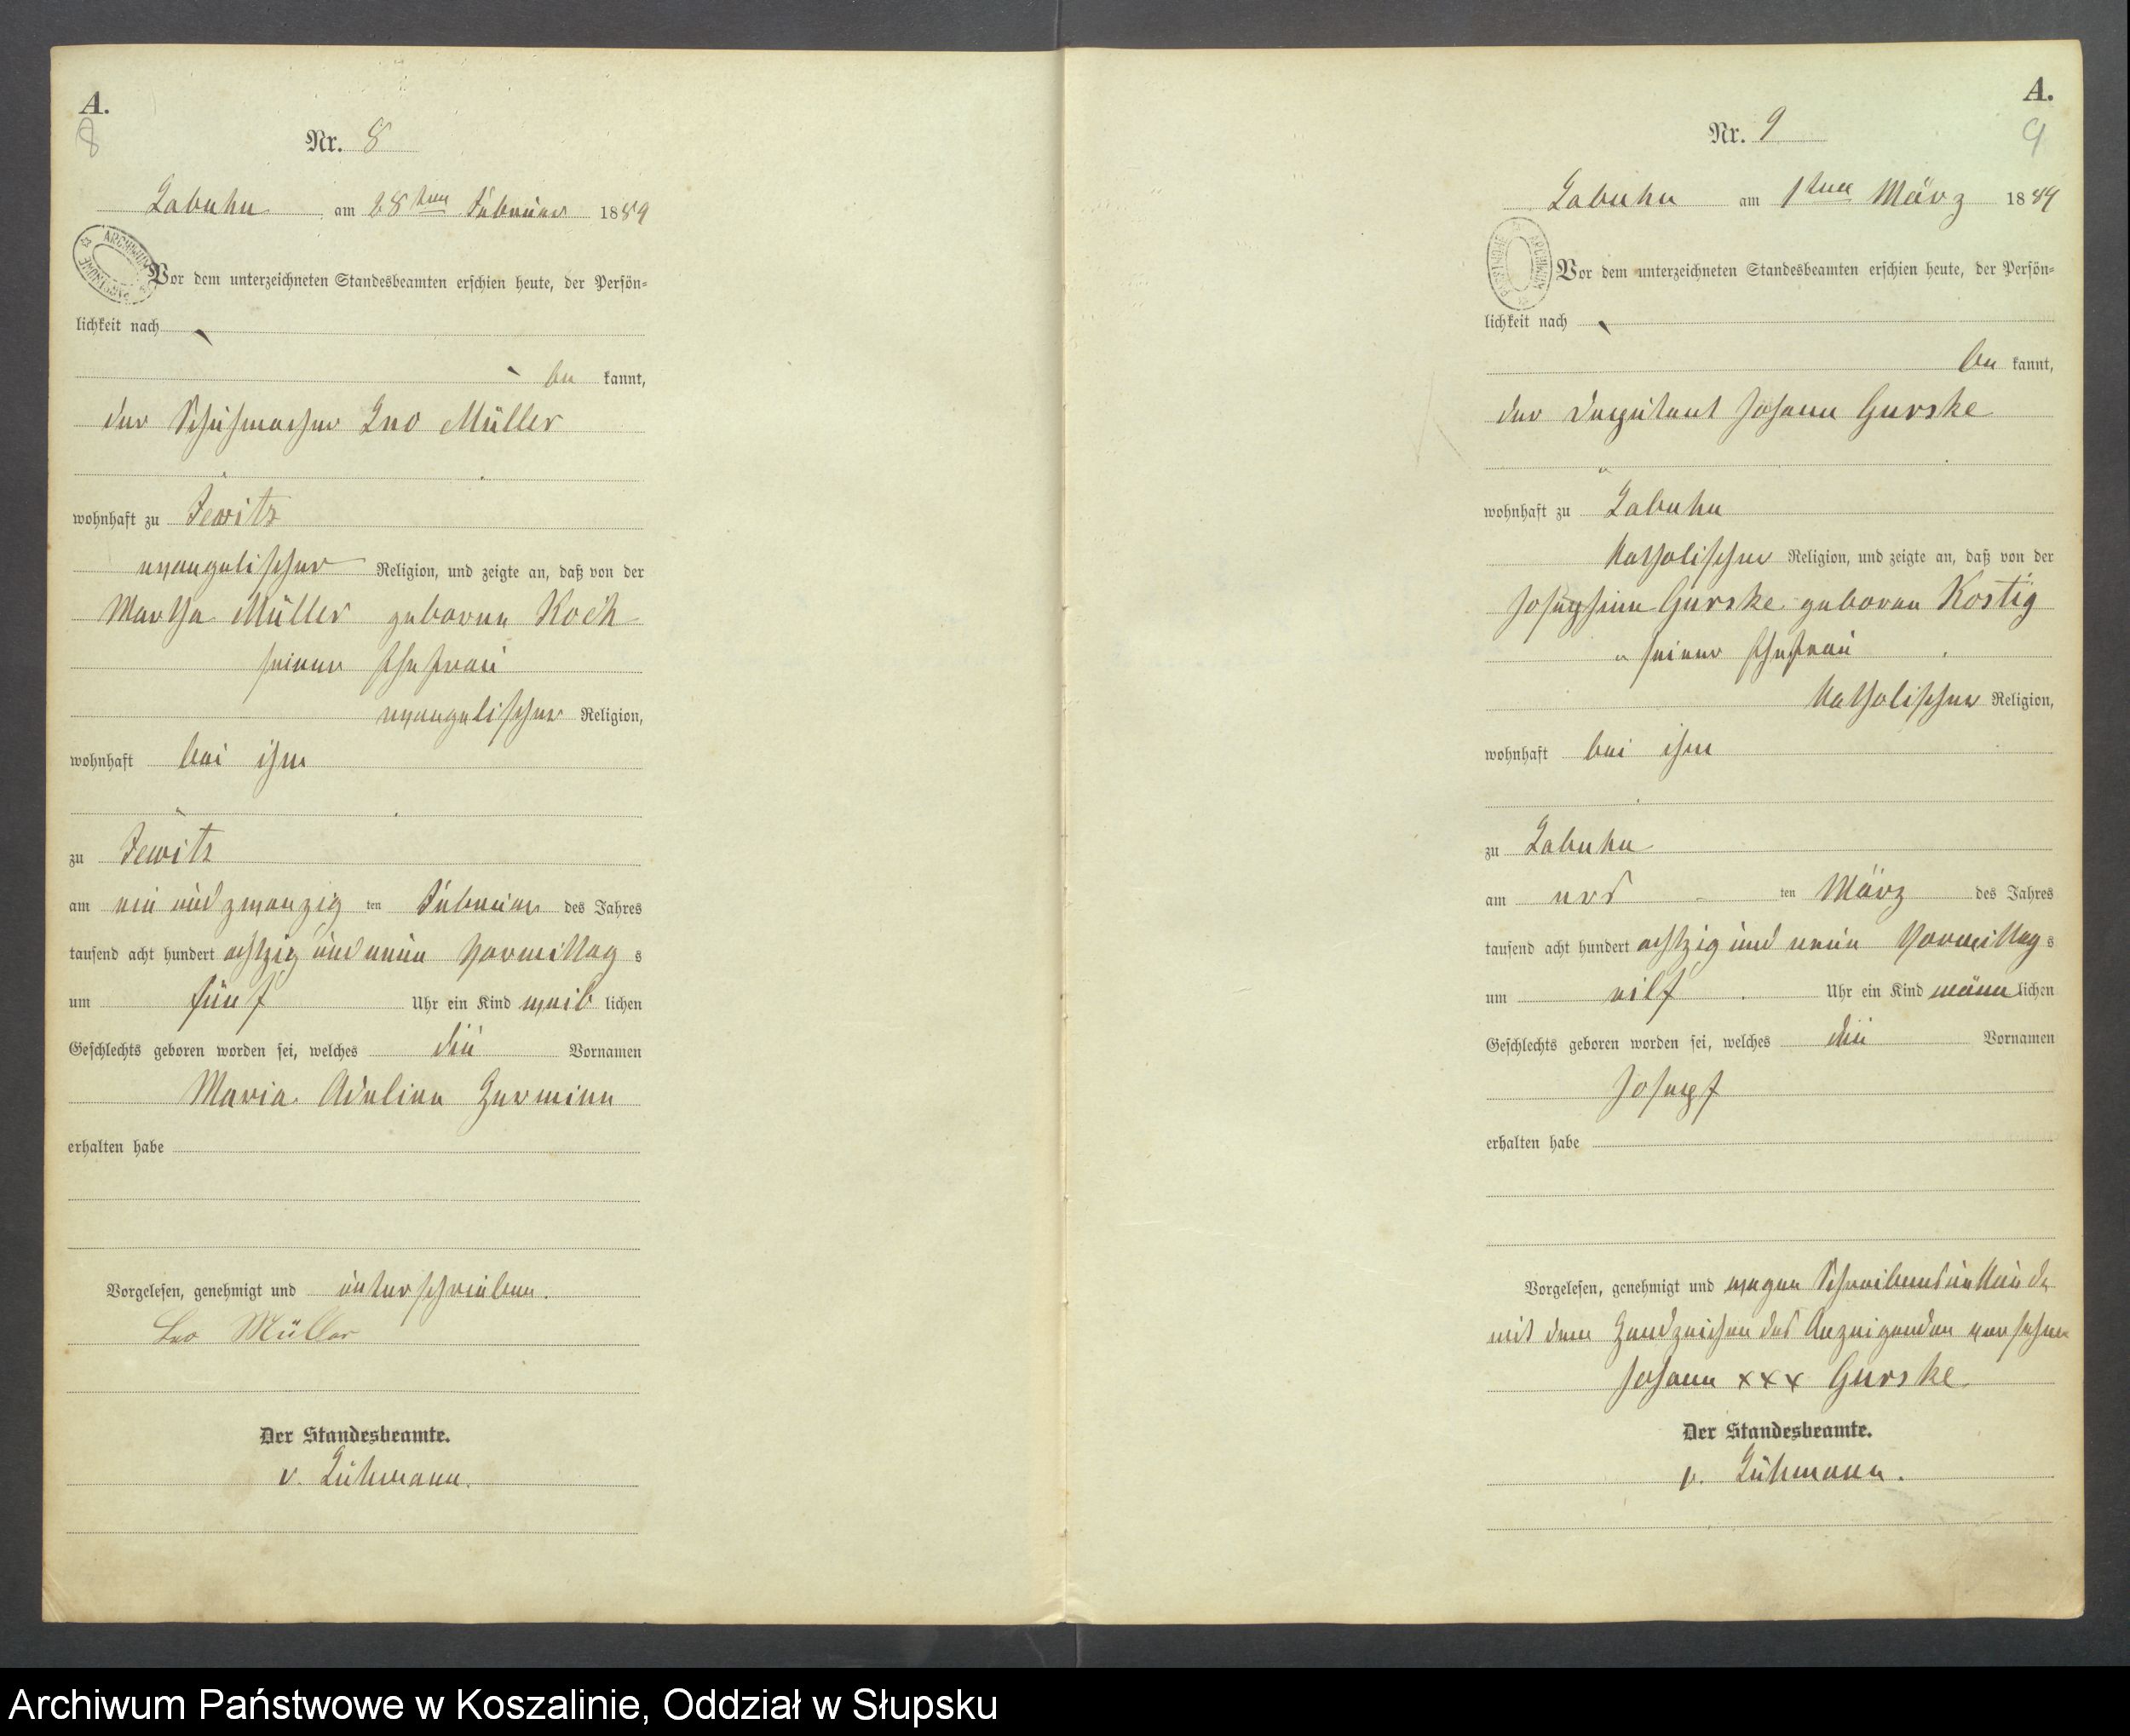 A.
8
Nr. 8
Labuhn am 28ten Februar 1889
Vor dem unterzeichneten Standesbeamten erschien heute, der Persön-
lichkeit nach
be kannt,
der Schuhmacher Leo Müller
wohnhaft zu Jewitz
evangelischer Religion, und zeigte an, daß von der
Martha Müller geborene Koch
seiner Ehefrau
evangelischer Religion,
wohnhaft bei ihm
zu Jewitz
am ein und zwanzig ten Februar des Jahres
tausend acht hundert achtzig und neun Vormittag s
um fünf Uhr ein Kind weib lichen
Geschlechts geboren worden sei, welches die Vornamen
Maria Adeline Hermine
erhalten habe
Vorgelesen, genehmigt und unterschrieben.
Leo Müller
Der Standesbeamte.
v. Lühmann.
A.
9
Nr. 9
Labuhn am 1ten März 1889
Vor dem unterzeichneten Standesbeamten erschien heute, der Persön-
lichkeit nach
be kannt,
der Deputant Johann Gurske
wohnhaft zu Labuhn
katholischer Religion, und zeigte an, daß von der
Josephine Gurske geboren Kostig
seiner Ehefrau
katholischer Religion,
wohnhaft bei ihm
zu Labuhn
am ers ten März des Jahres
tausend acht hundert achtzig und neun Vormittag s
um eilf Uhr ein Kind männ lichen
Geschlechts geboren worden sei, welches die Vornamen
Josepf
erhalten habe
Vorgelesen, genehmigt und wegen Schreibens
mit dem Handzeichen des Anzeigenden versehen
Johann xxx Gurske
Der Standesbeamte.
v. Lühmann.
Archiwum Państwowe w Koszalinie, Oddział w Słupsku